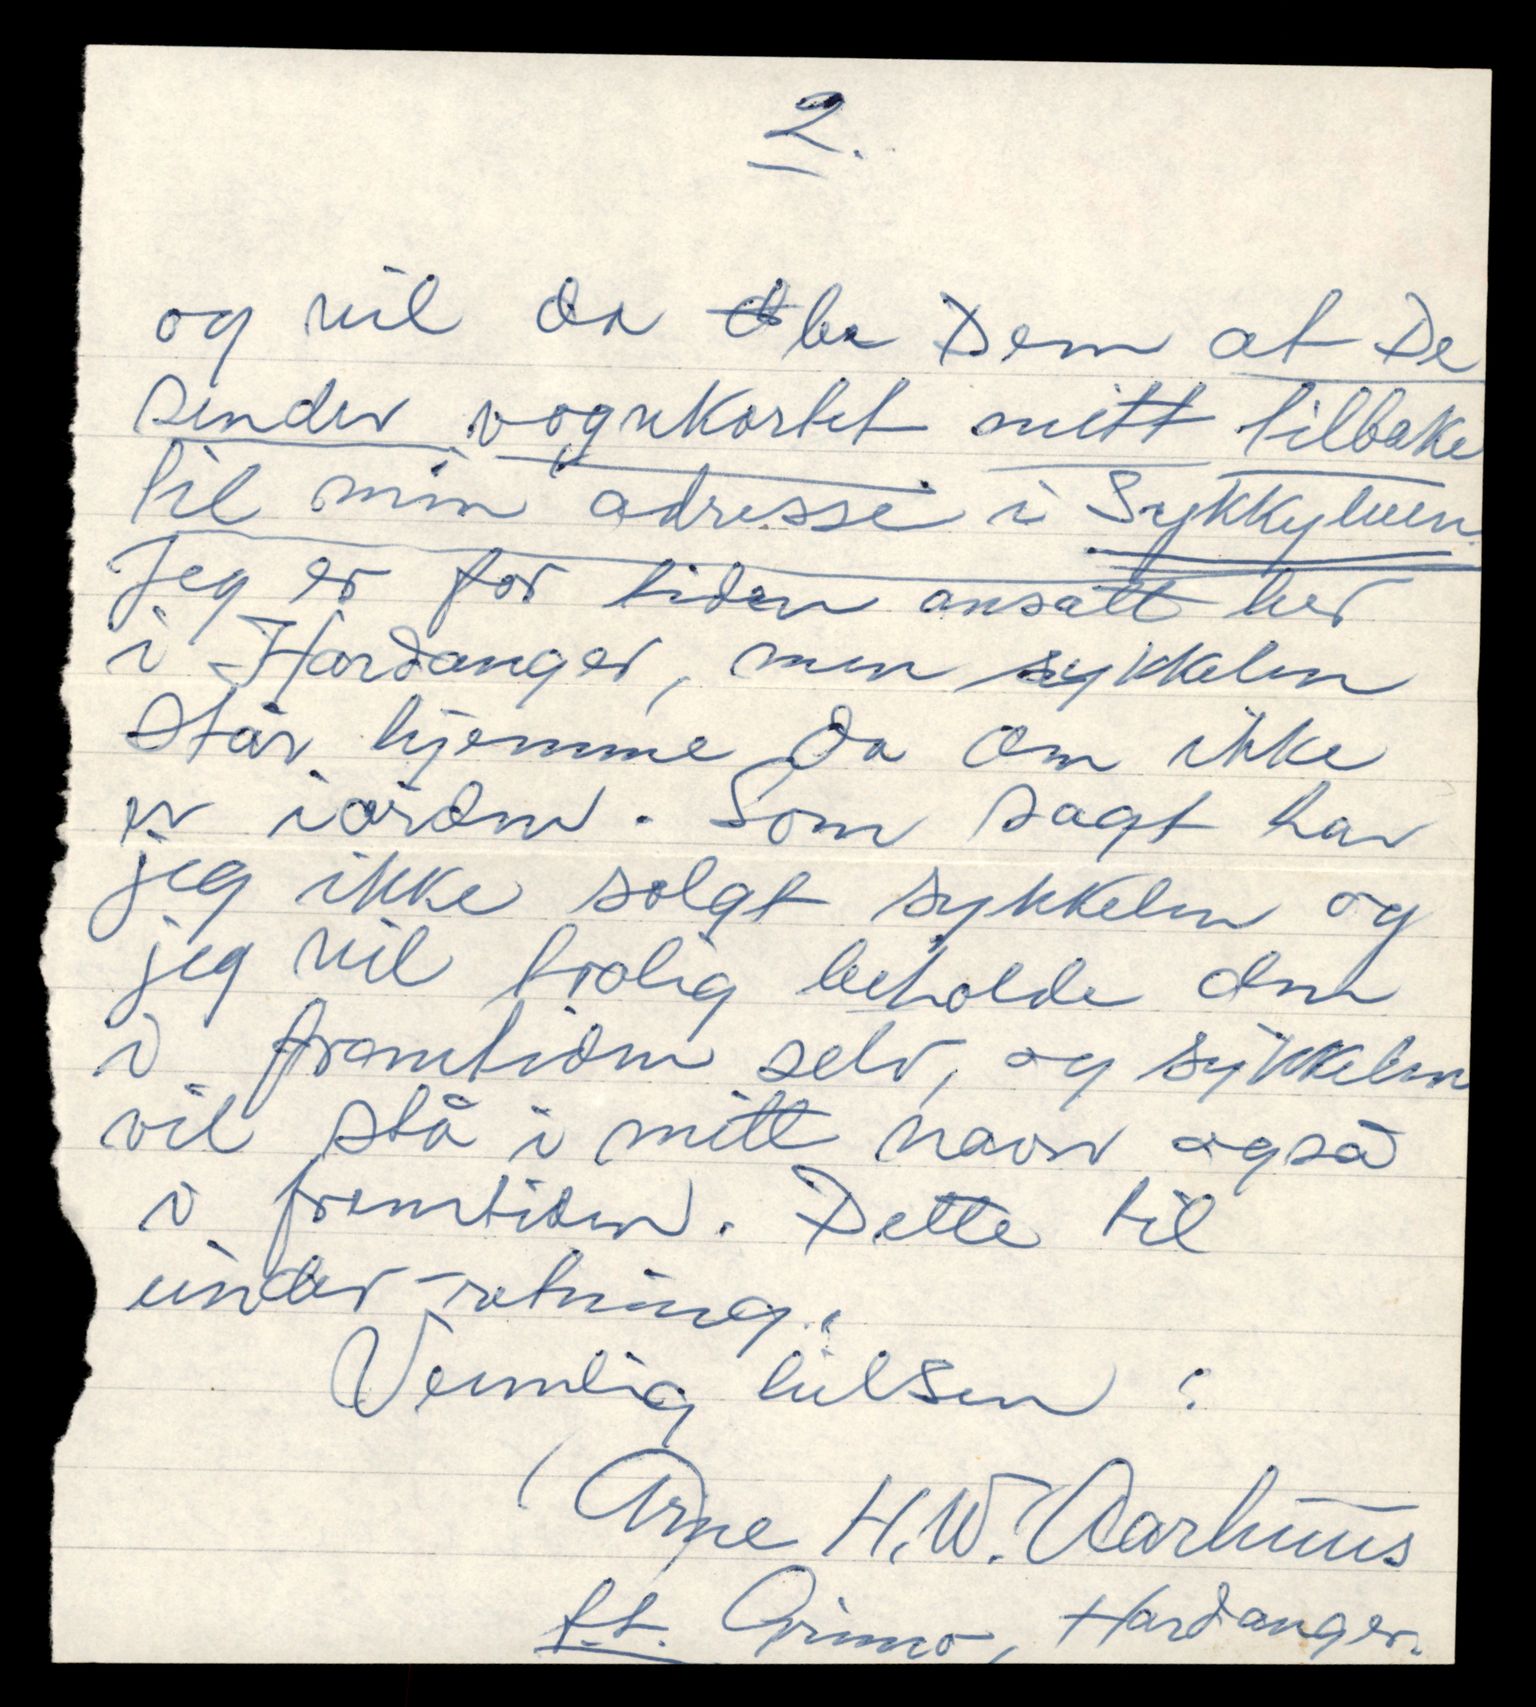 2.
og vil da be Dem at De
sender vognkortet mitt tilbake
til min adresse i Sykkylven.
Jeg er for tiden ansatt her
i Hardanger, men sykkelen
står hjemme da om ikke
er iorden. Som sagt har
jeg ikke solgt sykkelen og
jeg vil trolig beholde den
i framtiden selv, og sykkelen
vil stå i mitt navn også
i fremtiden. Dette til
under-retning.
Vennlig hilsen:
Arne H.W. Aarhuus
p.t. Grimo, Hardanger.